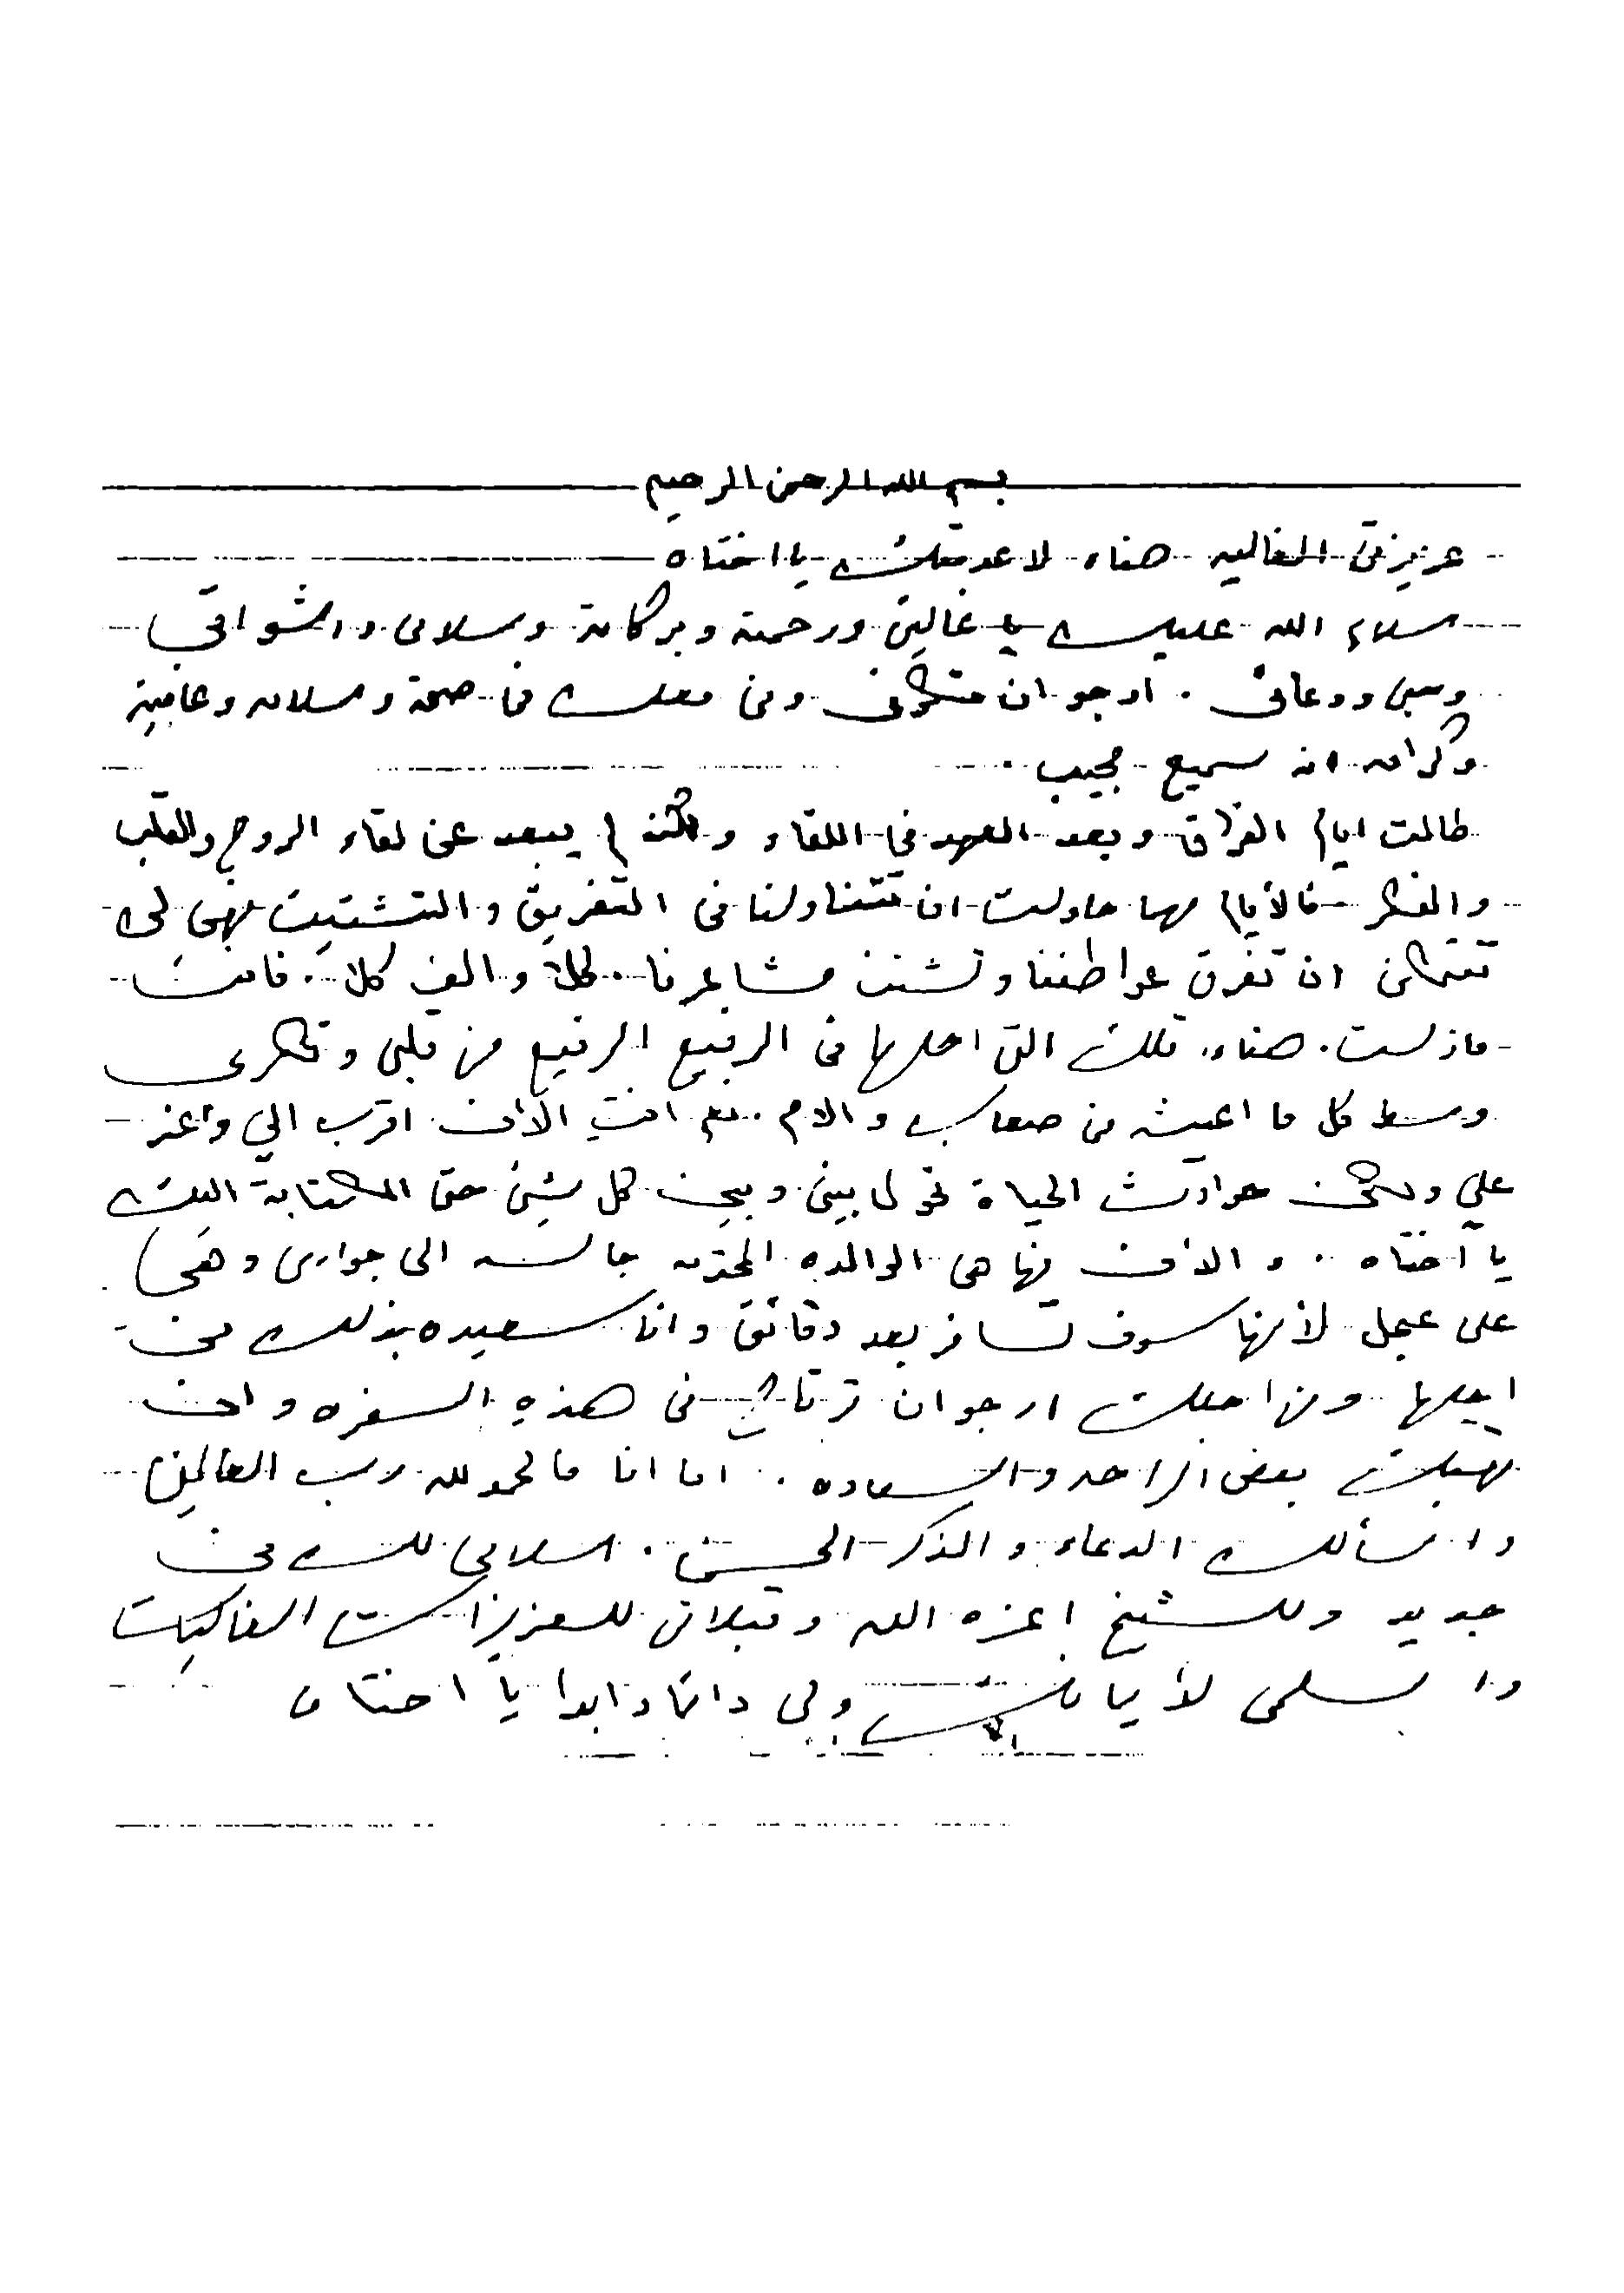 بسم الله الرحمن الرحيم
عزيزتي الغاليه هناء لا عدمتك يا اختاه
سلام الله عليك يا غاليتي ورحمته وبركاته وسلامي واشواقي
وحبي ودعائي . ارجو ان تكوني ومن معك في صحة وسلامه وعافية
وكرامه انه سميع مجيب .
طالت ايام الفراق وبعد العهد في اللقاء ولكنه لم يبعد عن لقاء الروح والقلب
والفكر فالأيام مهما حاولت ان تتناولنا في التفريق والتشتيت فهي لن
تتمكن ان تفرق عواطفنا وتشتت مشاعرنا . كلا والف كلا . فانت
مازلت . هناء . تلك التي احلها في الرفيع الرفيع من قلبي وفكري
وسط كل ما اعيشه من صعاب والام . نعم انتِ الآن اقرب الي واعز
علي ولكن حوادث الحياة تحول بيني وبين كل شيئ حتى الكتابة اليك
يا اختاه .. والآن فها هي الوالده المحترمه جالسه الى جواري وهي
على عجل لأنها سوف تسافر بعد دقائق وانا سعيده بذلك من
اجلها ومن اجلك ارجو ان ترتاح في هذه السفره وان
تهبك بعض الراحه والسعاده . اما انا فالحمد لله رب العالمين
وانسألك الدعاء والذكر الحسن . سلامي لك من
جديد وللشيخ اعزه الله وقبلاتي للعزيزات الغاليات
واسلمي لأبنائك ولي دائما وابدا يا اختاه